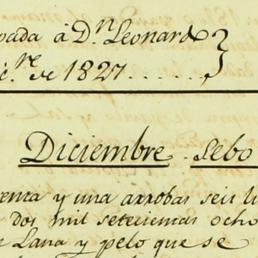 pada á Dn. Leonardo
ic.re de 1827......
Diciembre Sebo
enta y una arrobas seis li
dos mil setecientas ocho
Lana y pelo que se